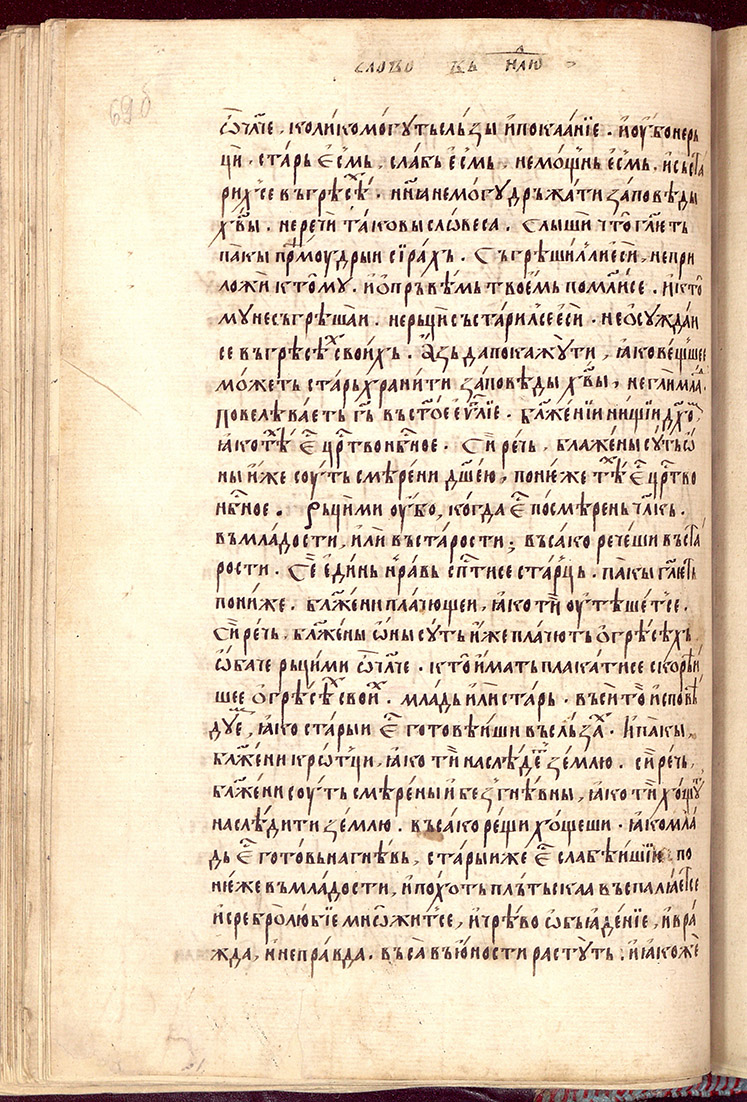 слово въ н҃лю
69б
ѿ чл҃че , колико могуть сльзы и покаанїе . и оубо не рь
ци , старь есмь , слабь есмь , немощнь есмь . и съста
рих се въ грѣсѣⷯ . и нꙗ не могу дръжати заповѣды
хв҃ы . не реци таковы словеса . Слыши что гл҃еть
пакы прⷨѣоудрыи сїрахь . Съгрѣшил ли еси , не при
ложи к тому . и о прьвѣмь твоемь помл҃и се . и к то
му не съгрѣшаи . не рьци състарил се еси . не осуждаи
се въ грѣсѣⷯ своихъ . Азь да покажу ти , ꙗко веꙗщьшее
можеть старь хранити заповѣды хв҃ы , негли млаⷣ .
повелѣваеть гь҃ въ ст҃ое еѵ҃лїе . бл҃жени нищїи дх҃оⷨ
ꙗко тѣⷯ есⷮ црⷭ҇тво нбⷭ҇ное . Сирѣчь , блажены суть ѡ
ны иже соуть смѣрени дш҃ею , понеже тѣⷯ есⷮ црⷭ҇тво
нбⷭ҇ное . Рьци ми оубо , когда есⷮ посмѣрень чл҃кь .
въ младости , или въ старости ; въсако речеши въ ста
рости . Се единь нравь сп҃ти се старць . пакы гл҃еть
пониже . бл҃жени плачющеи , ꙗко ти оутѣшетсе .
Сирѣчь , бл҃жены ѡны суть иже плачють о грѣсѣхь
ѡбаче рьци ми ѿ чл҃че . кто имать плакати се скорѣи
шее о грѣсѣⷯ своиⷯ . младь или старь . въси то исповѣ
дуеⷨ , ꙗко старыи есⷮ готовѣиши въ сльзаⷯ . И пакы ,
бл҃жени кротци , ꙗко ти наслѣдеⷮ землю . сирѣчь ,
бл҃жени соуть смѣрены и безгнѣвны , ꙗко ти хощуⷮ
наслѣдити землю . въсако рещи хощеши . ꙗко мла
дь есⷮ готовь на гнѣвь , старыи же есⷮ слабѣишїи . по
неже въ младости , и похоть плътьскаа въспалꙗет се
и сребролюбїе мнѡжитсе , и чрѣво ѡбьꙗденїе , и вра
жда , и неправда . въса въ юности растуть . и ꙗкоже